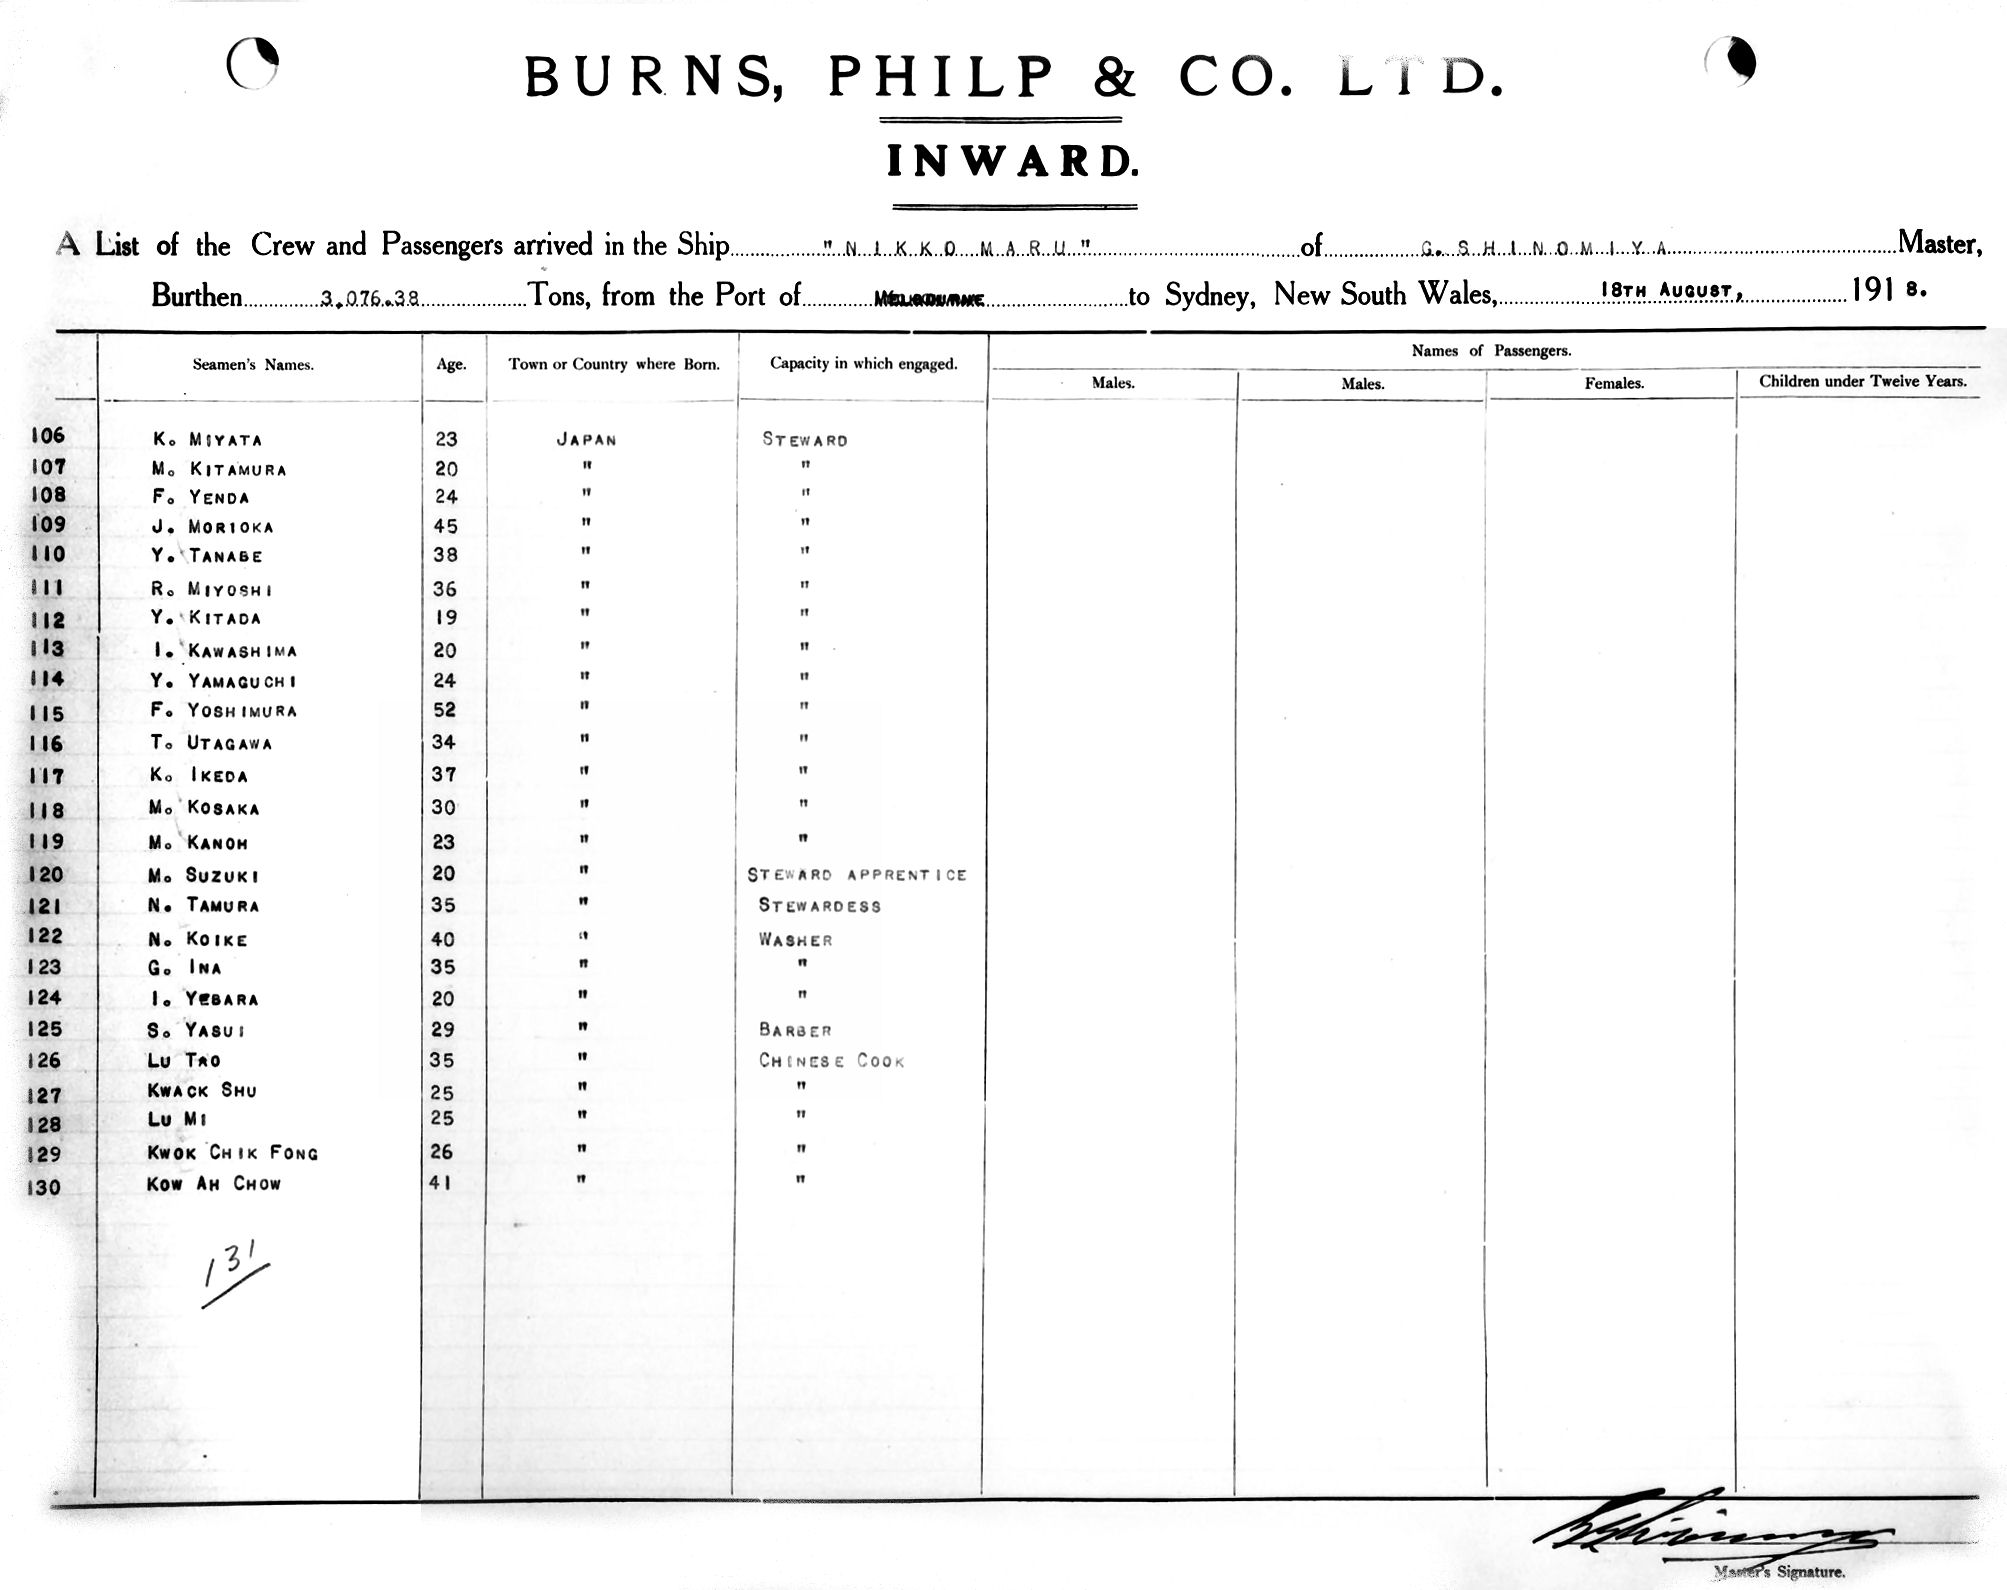 BURNS, PHILP & CO. LTD.
INWARD.
A List of the Crew and Passengers arrived in the Ship "NIKKO MARU" of G. SHINOMIYA Master,
Burthen 3,076.38 Tons, from the Port of MELBOURNE to Sydney, New South Wales, 18TH AUGUST, 1918.
Names of Passengers.
Seamen's Names. Age. Town or Country where Born. Capacity in which engaged. Males. Males. Females. Children under Twelve Years.
106 K. MIYATA 23 JAPAN STEWARD
107 M. KITAMURA 20 " "
108 F. YENDA 24 " "
109 J. MORIOKA 45 " "
110 Y. TANABE 38 " "
111 R. MIYOSHI 36 " "
112 Y. KITADA 19 " "
113 I. KAWASHIMA 20 " "
114 Y. YAMAGUCHI 24 " "
115 F. YOSHIMURA 52 " "
116 T. UTAGAWA 34 " "
117 K. IKEDA 37 " "
118 M. KOSAKA 30 " "
119 M. KANOH 23 " "
120 M. SUZUKI 20 " STEWARD APPRENTICE
121 N. TAMURA 35 " STEWARDESS
122 N. KOIKE 40 " WASHER
123 G. INA 35 " "
124 I. YEBARA 20 " "
125 S. YASUI 29 " BARBER
126 LU TAO 35 " CHINESE COOK
127 KWACK SHU 25 " "
128 LU MI 25 " "
129 KWOK CHIK FONG 26 " "
130 KOW AH CHOW 41 " "
131
Master's Signature.